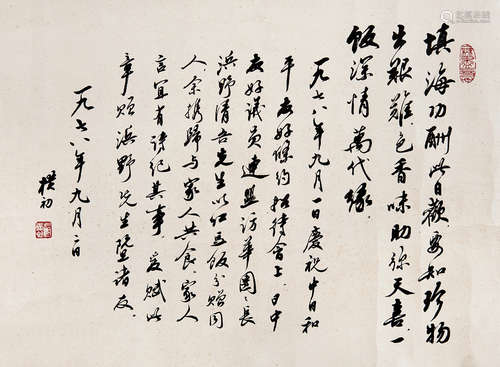 填海功酬此日歡要知珍物
出艱難色香味助弥天喜一
飯深情萬代緣
一九七八年九月一日慶祝中日和
平友好條約招待會上日中
友好議員連盟訪華團團長
浜野清吾先生以红豆飯分贈同
人余携歸与家人共食家人
言宜有诗纪其事爰赋此
章贈浜野先生暨諸友
一九七八年九月二日
樸初